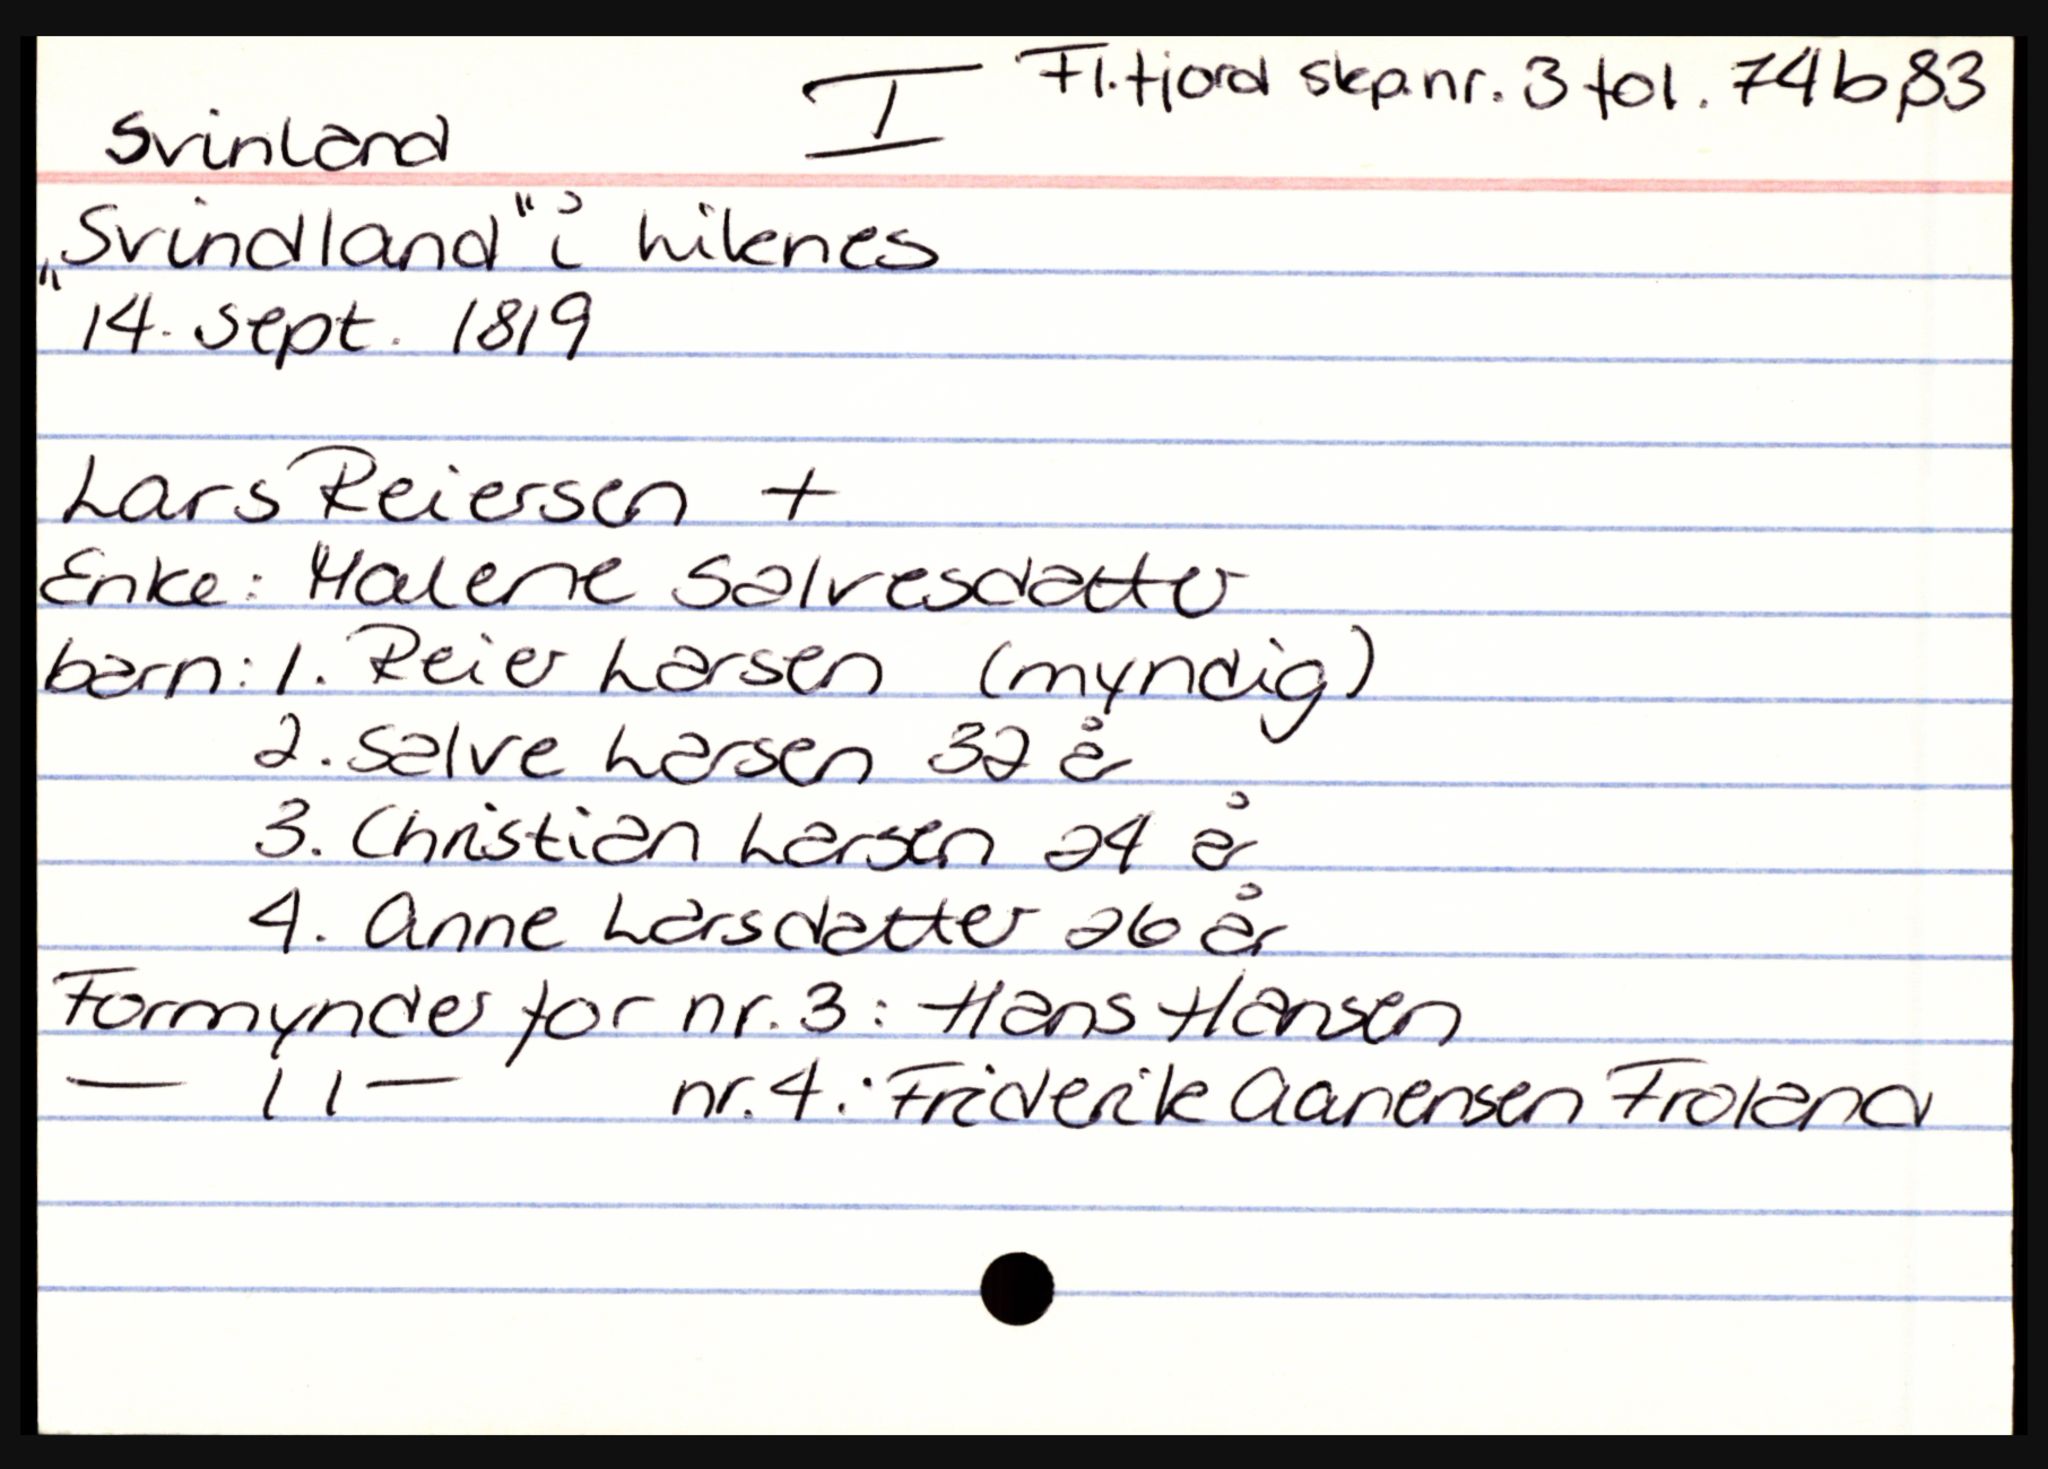 Svinland I Fl.fjord skp.nr. 3 fol. 74b,83
„Svindland" i Liknes
14. sept. 1819
Lars Reiersen +
Enke: Malene Salvesdatter
barn: 1. Reier Larsen (myndig)
2. Salve Larsen 32 år
3. Christian Larsen 24 år
4. Anne Larsdatter 26 år
Formynder for nr. 3: Hans Hansen
— 11 — nr. 4.: Friderik Aanensen Froland